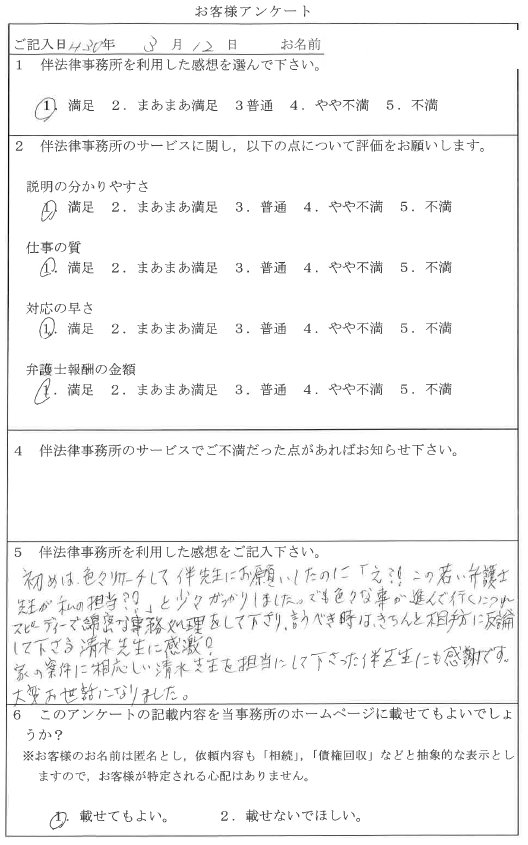 お客様アンケート
ご記入日 H30年 3 月 12 日 お名前
1 伴法律事務所を利用した感想を選んで下さい。
1．満足 2．まあまあ満足 3普通 4．やや不満 5．不満
2 伴法律事務所のサービスに関し，以下の点について評価をお願いします。
説明の分かりやすさ
1．満足 2．まあまあ満足 3．普通 4．やや不満 5．不満
仕事の質
1．満足 2．まあまあ満足 3．普通 4．やや不満 5．不満
対応の早さ
1．満足 2．まあまあ満足 3．普通 4．やや不満 5．不満
弁護士報酬の金額
1．満足 2．まあまあ満足 3．普通 4．やや不満 5．不満
4 伴法律事務所のサービスでご不満だった点があればお知らせ下さい。
5 伴法律事務所を利用した感想をご記入下さい。
初めは、色々リサーチして伴先生にお願いしたのに「え?! この若い弁護士
先生が私の担当?!」と少々ガッカリしました。でも色々な事が進んで行くにつれ
スピーディーで綿密な事務処理をして下さり、言うべき時は、きちんと相手方に反論
して下さる清水先生に感激!
家の案件に相応しい清水先生を担当にして下さった伴先生にも感謝です。
大変お世話になりました。
6 このアンケートの記載内容を当事務所のホームページに載せてもよいでしょ
うか？
※お客様のお名前は匿名とし，依頼内容も「相続」，「債権回収」などと抽象的な表示とし
ますので，お客様が特定される心配はありません。
1．載せてもよい。 2．載せないでほしい。